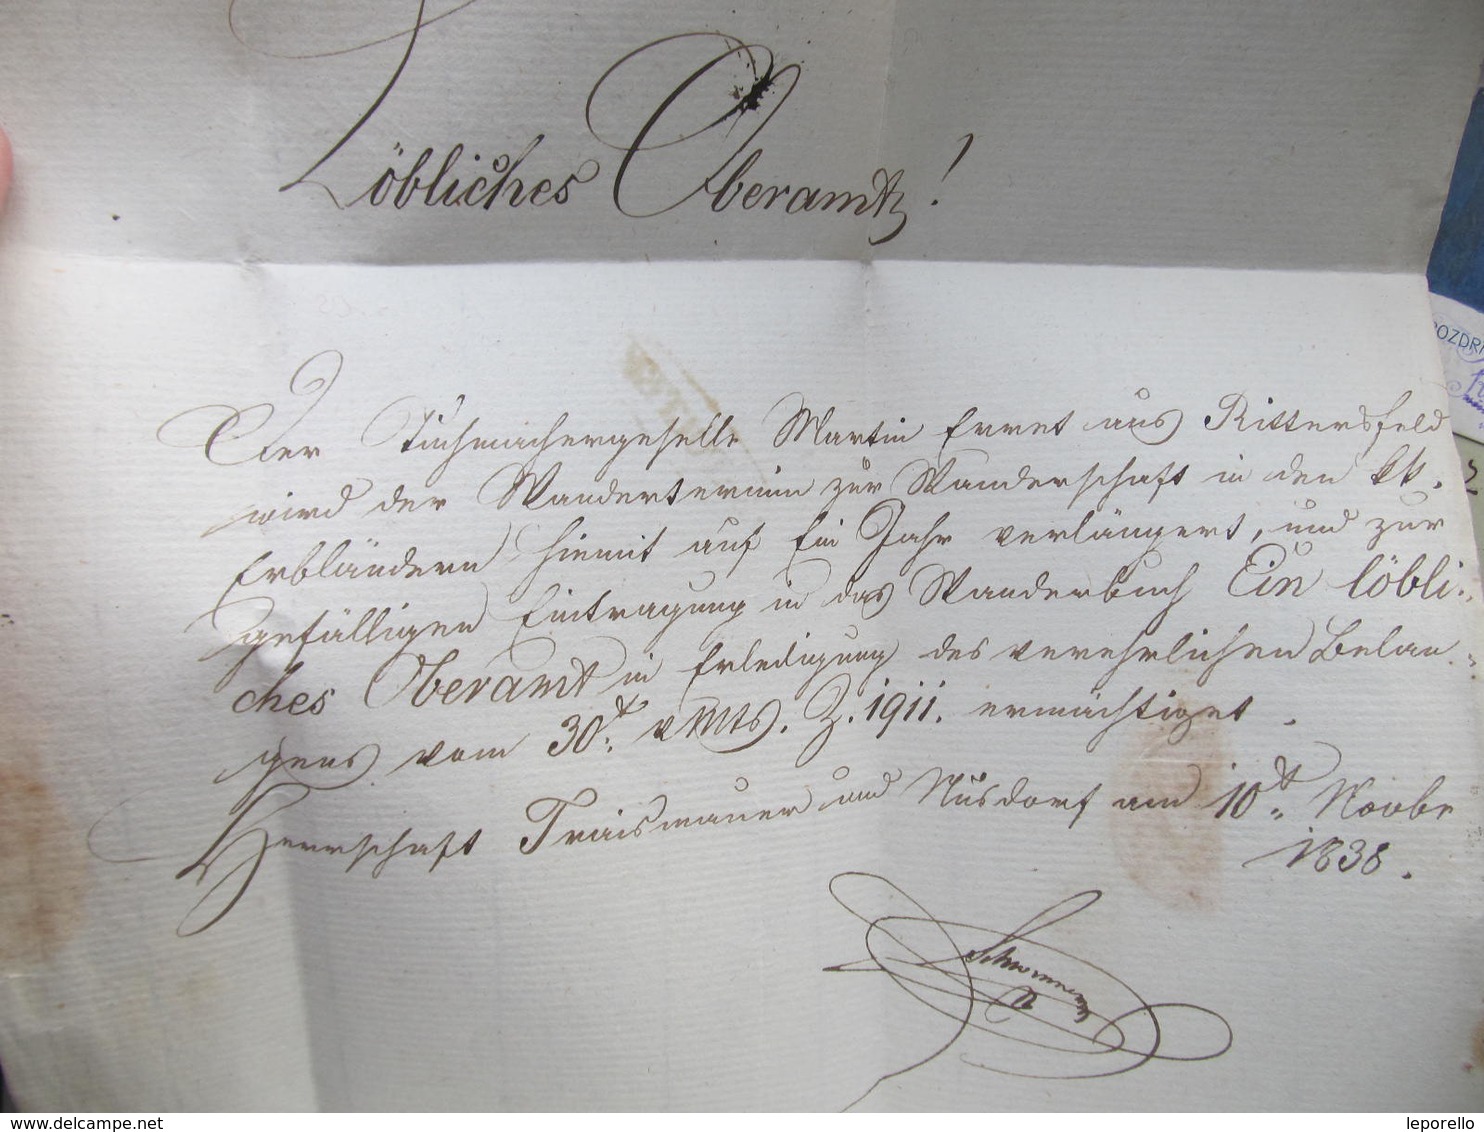 Löbliches Oberamt!
Der Tuchmachergeselle Martin Erret aus Rittersfeld
wird der Wandertermin zur Wanderschaft in den kk.
Erbländern hiemit auf Ein Jahr verlängert, und zur
gefälligen Eintragung in das Wanderbuch Ein löbli-
ches Oberamt in Erledigung des verehrlichen Belan-
gens vom 30t. v Mts. Z. 1911. ermächtiget.
Herrschaft Traismauer und Nusdorf am 10t. Novbr
1838.
POZDR
www.delcampe.net
leporello